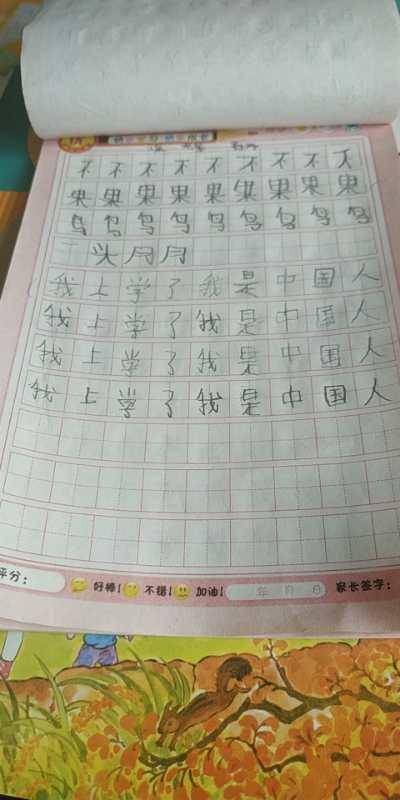 不不不不不不不不不
果果果果果果果果果
鸟鸟鸟鸟鸟鸟鸟鸟鸟
头月月
我上学了我是中国人
我上学了我是中国人
我上学了我是中国人
我上学了我是中国人
评分： 好棒！ 不错！ 加油！ 年 月 日 家长签字：